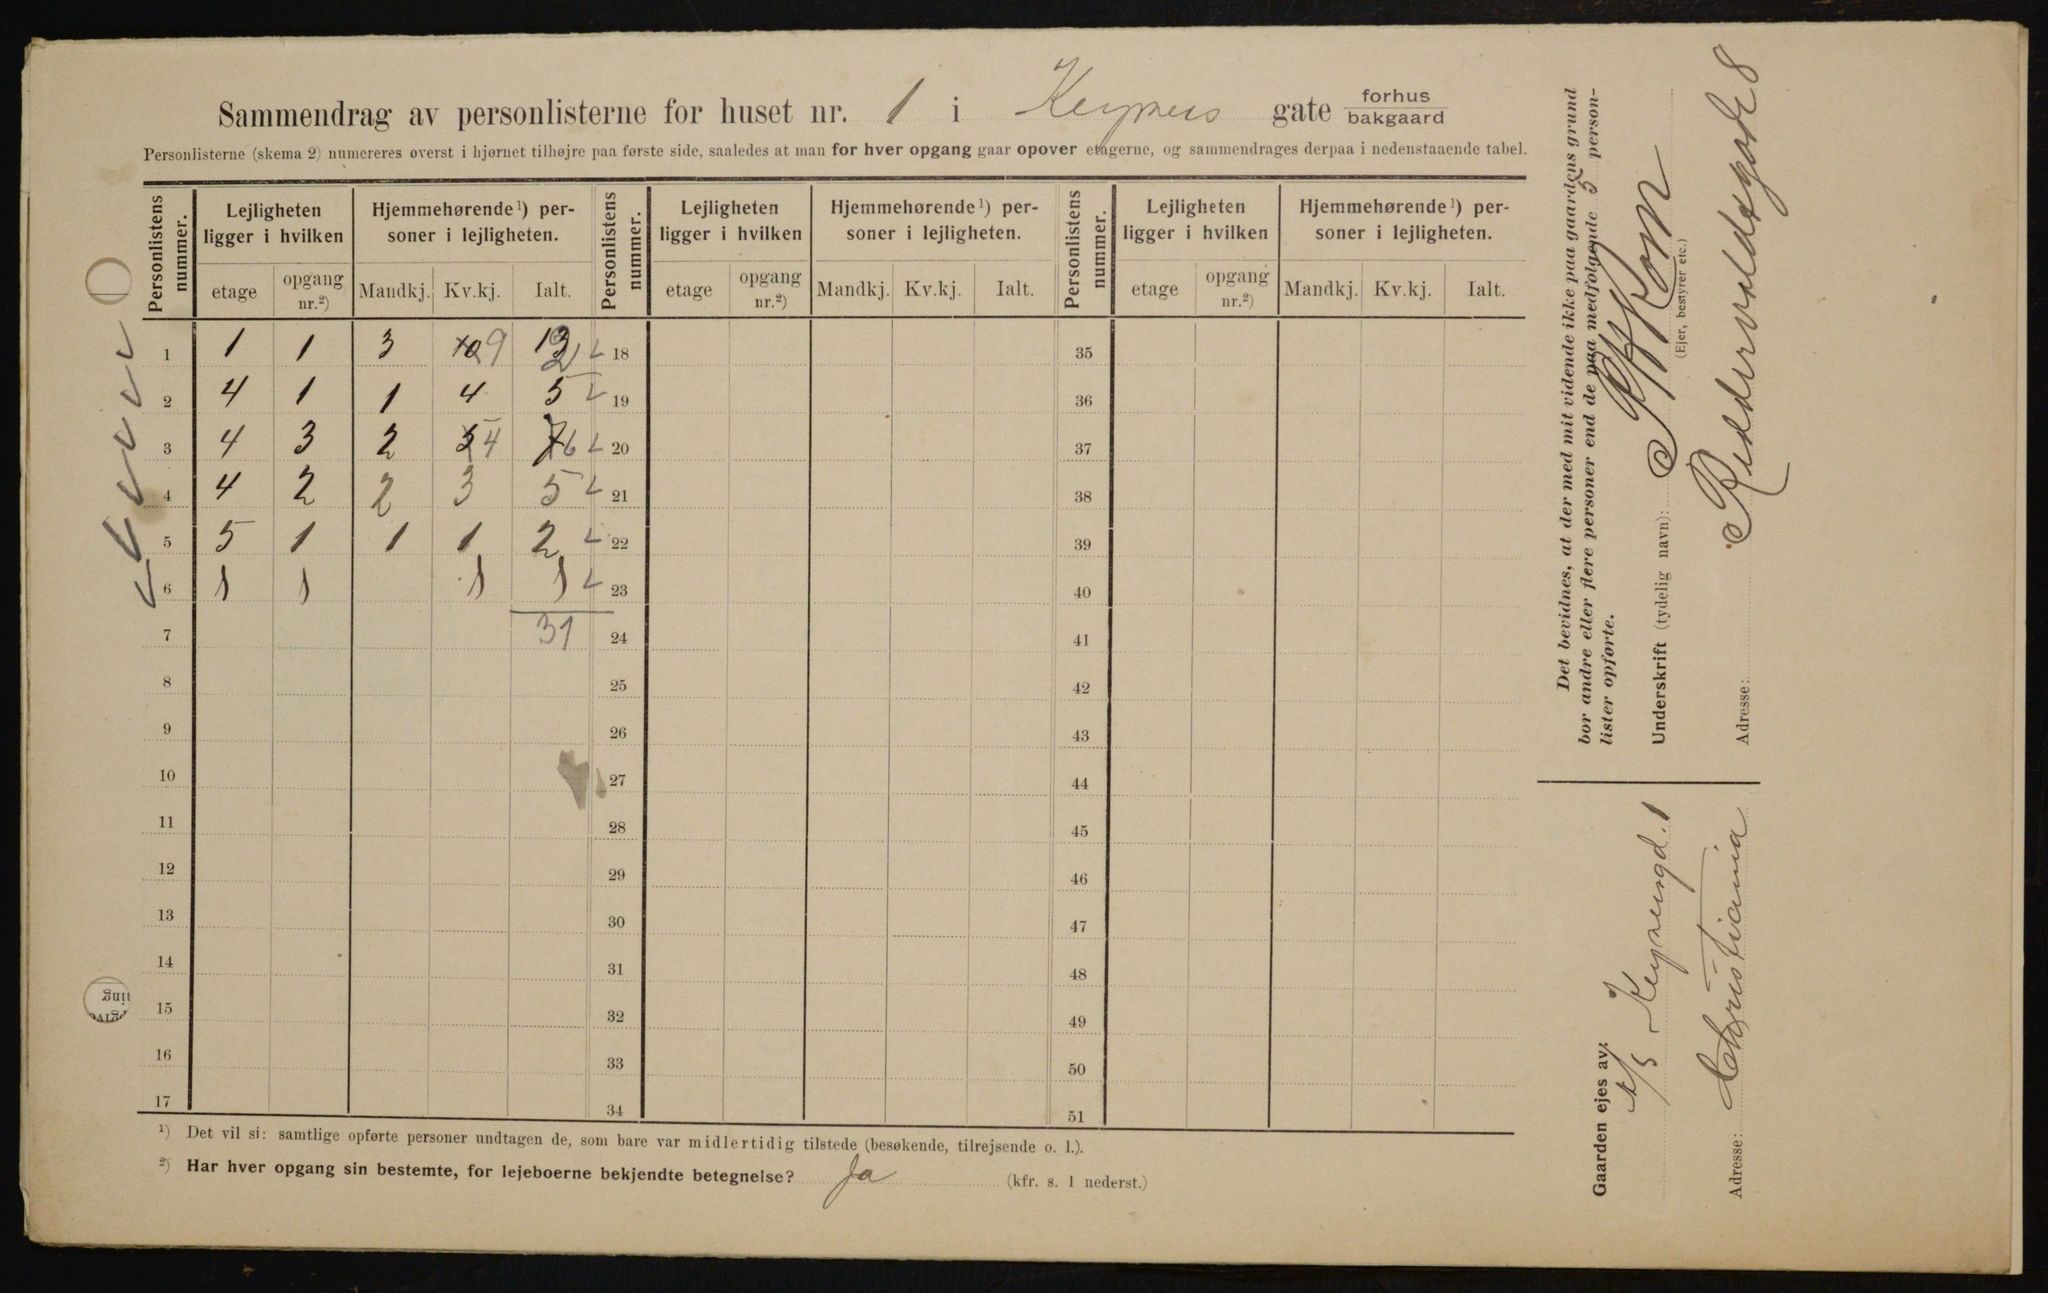 Sammendrag av personlisterne for huset nr. 1 i Keysers gate forhus
bakgaard
Personlisterne (skema 2) numereres øverst i hjørnet tilhøjre paa første side, saaledes at man for hver opgang gaar opover etagerne, og sammendrages derpaa i nedenstaaende tabel.
Personlistens nummer. Lejligheten ligger i hvilken Hjemmehørende ¹) personer i lejligheten. Personlistens nummer. Lejligheten ligger i hvilken Hjemmehørende ¹) personer i lejligheten. Personlistens nummer. Lejligheten ligger i hvilken Hjemmehørende ¹) personer i lejligheten.
etage opgang nr.²) Mandkj. Kv.kj. Ialt. etage opgang nr.²) Mandkj. Kv.kj. Ialt. etage opgang nr.²) Mandkj. Kv.kj. Ialt.
1 1 1 3 10 9 13 2 18 35
2 4 1 1 4 5 19 36
3 4 3 2 5 4 7 6 20 37
4 4 2 2 3 5 21 38
5 5 1 1 1 2 22 39
6 1 1 1 1 23 40
7 31 24 41
8 25 42
9 26 43
10 27 44
11 28 45
12 29 46
13 30 47
14 31 48
15 32 49
16 33 50
17 34 51
¹) Det vil si: samtlige opførte personer undtagen de, som bare var midlertidig tilstede (besøkende, tilrejsende o. l.).
²) Har hver opgang sin bestemte, for lejeboerne bekjendte betegnelse? Ja (kfr. s. 1 nederst.)
Det bevidnes, at der med mit vidende ikke paa gaardens grund
bor andre eller flere personer end de paa medfølgende 5 person-
lister opførte.
Underskrift (tydelig navn):
(Ejer, bestyrer etc.)
Adresse:
Gaarden ejes av: A/S Keysersgd. 1
Adresse: Christiania